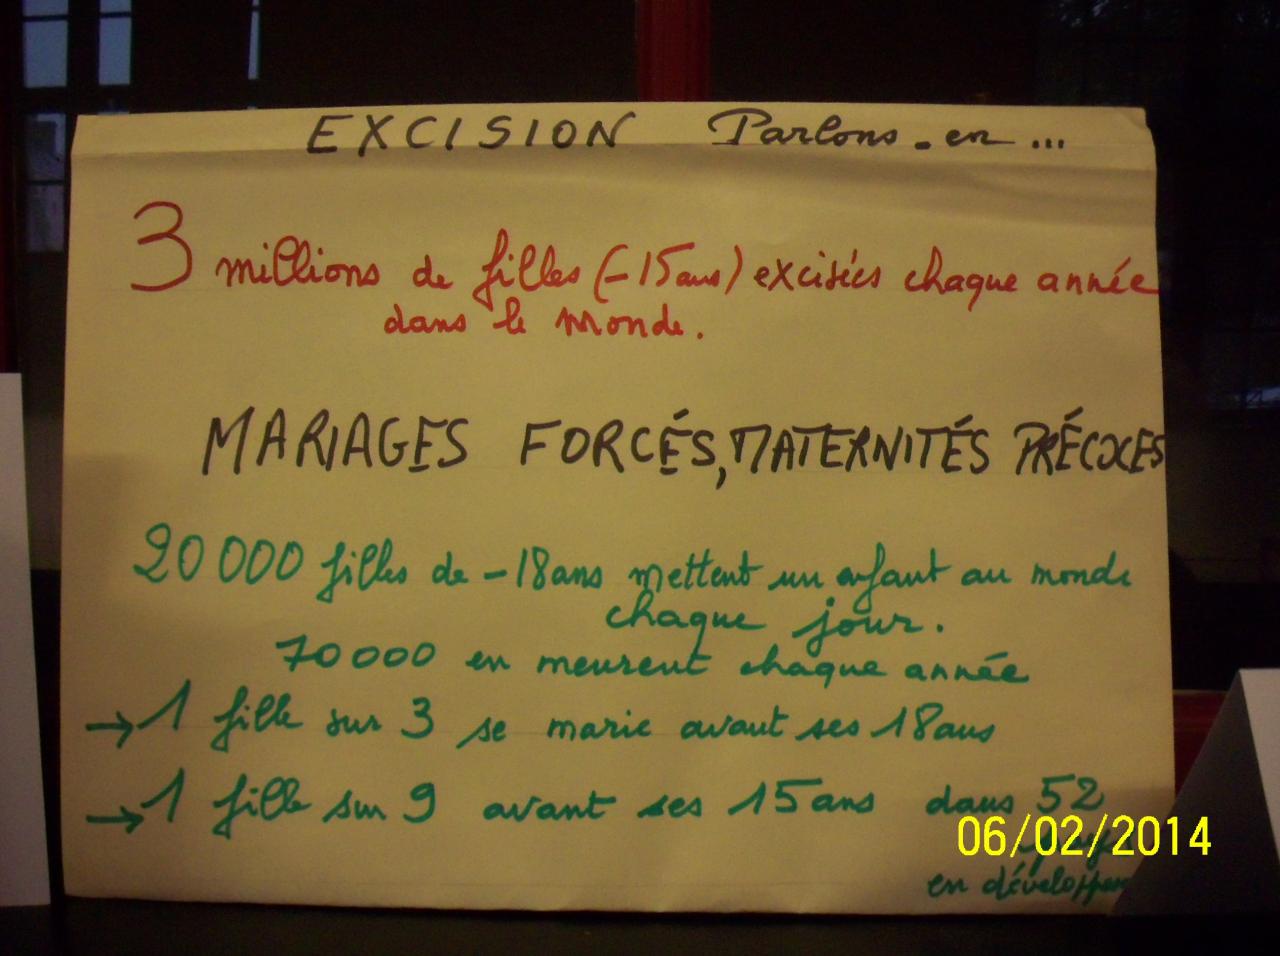 EXCISION Parlons-en...
3 millions de filles (-15 ans) excisées chaque année
dans le monde.
MARIAGES FORCÉS, MATERNITÉS PRÉCOCES
20 000 filles de -18 ans mettent un enfant au monde
chaque jour.
70 000 en meurent chaque année
→ 1 fille sur 3 se marie avant ses 18 ans
→ 1 fille sur 9 avant ses 15 ans dans 52
en
06/02/2014